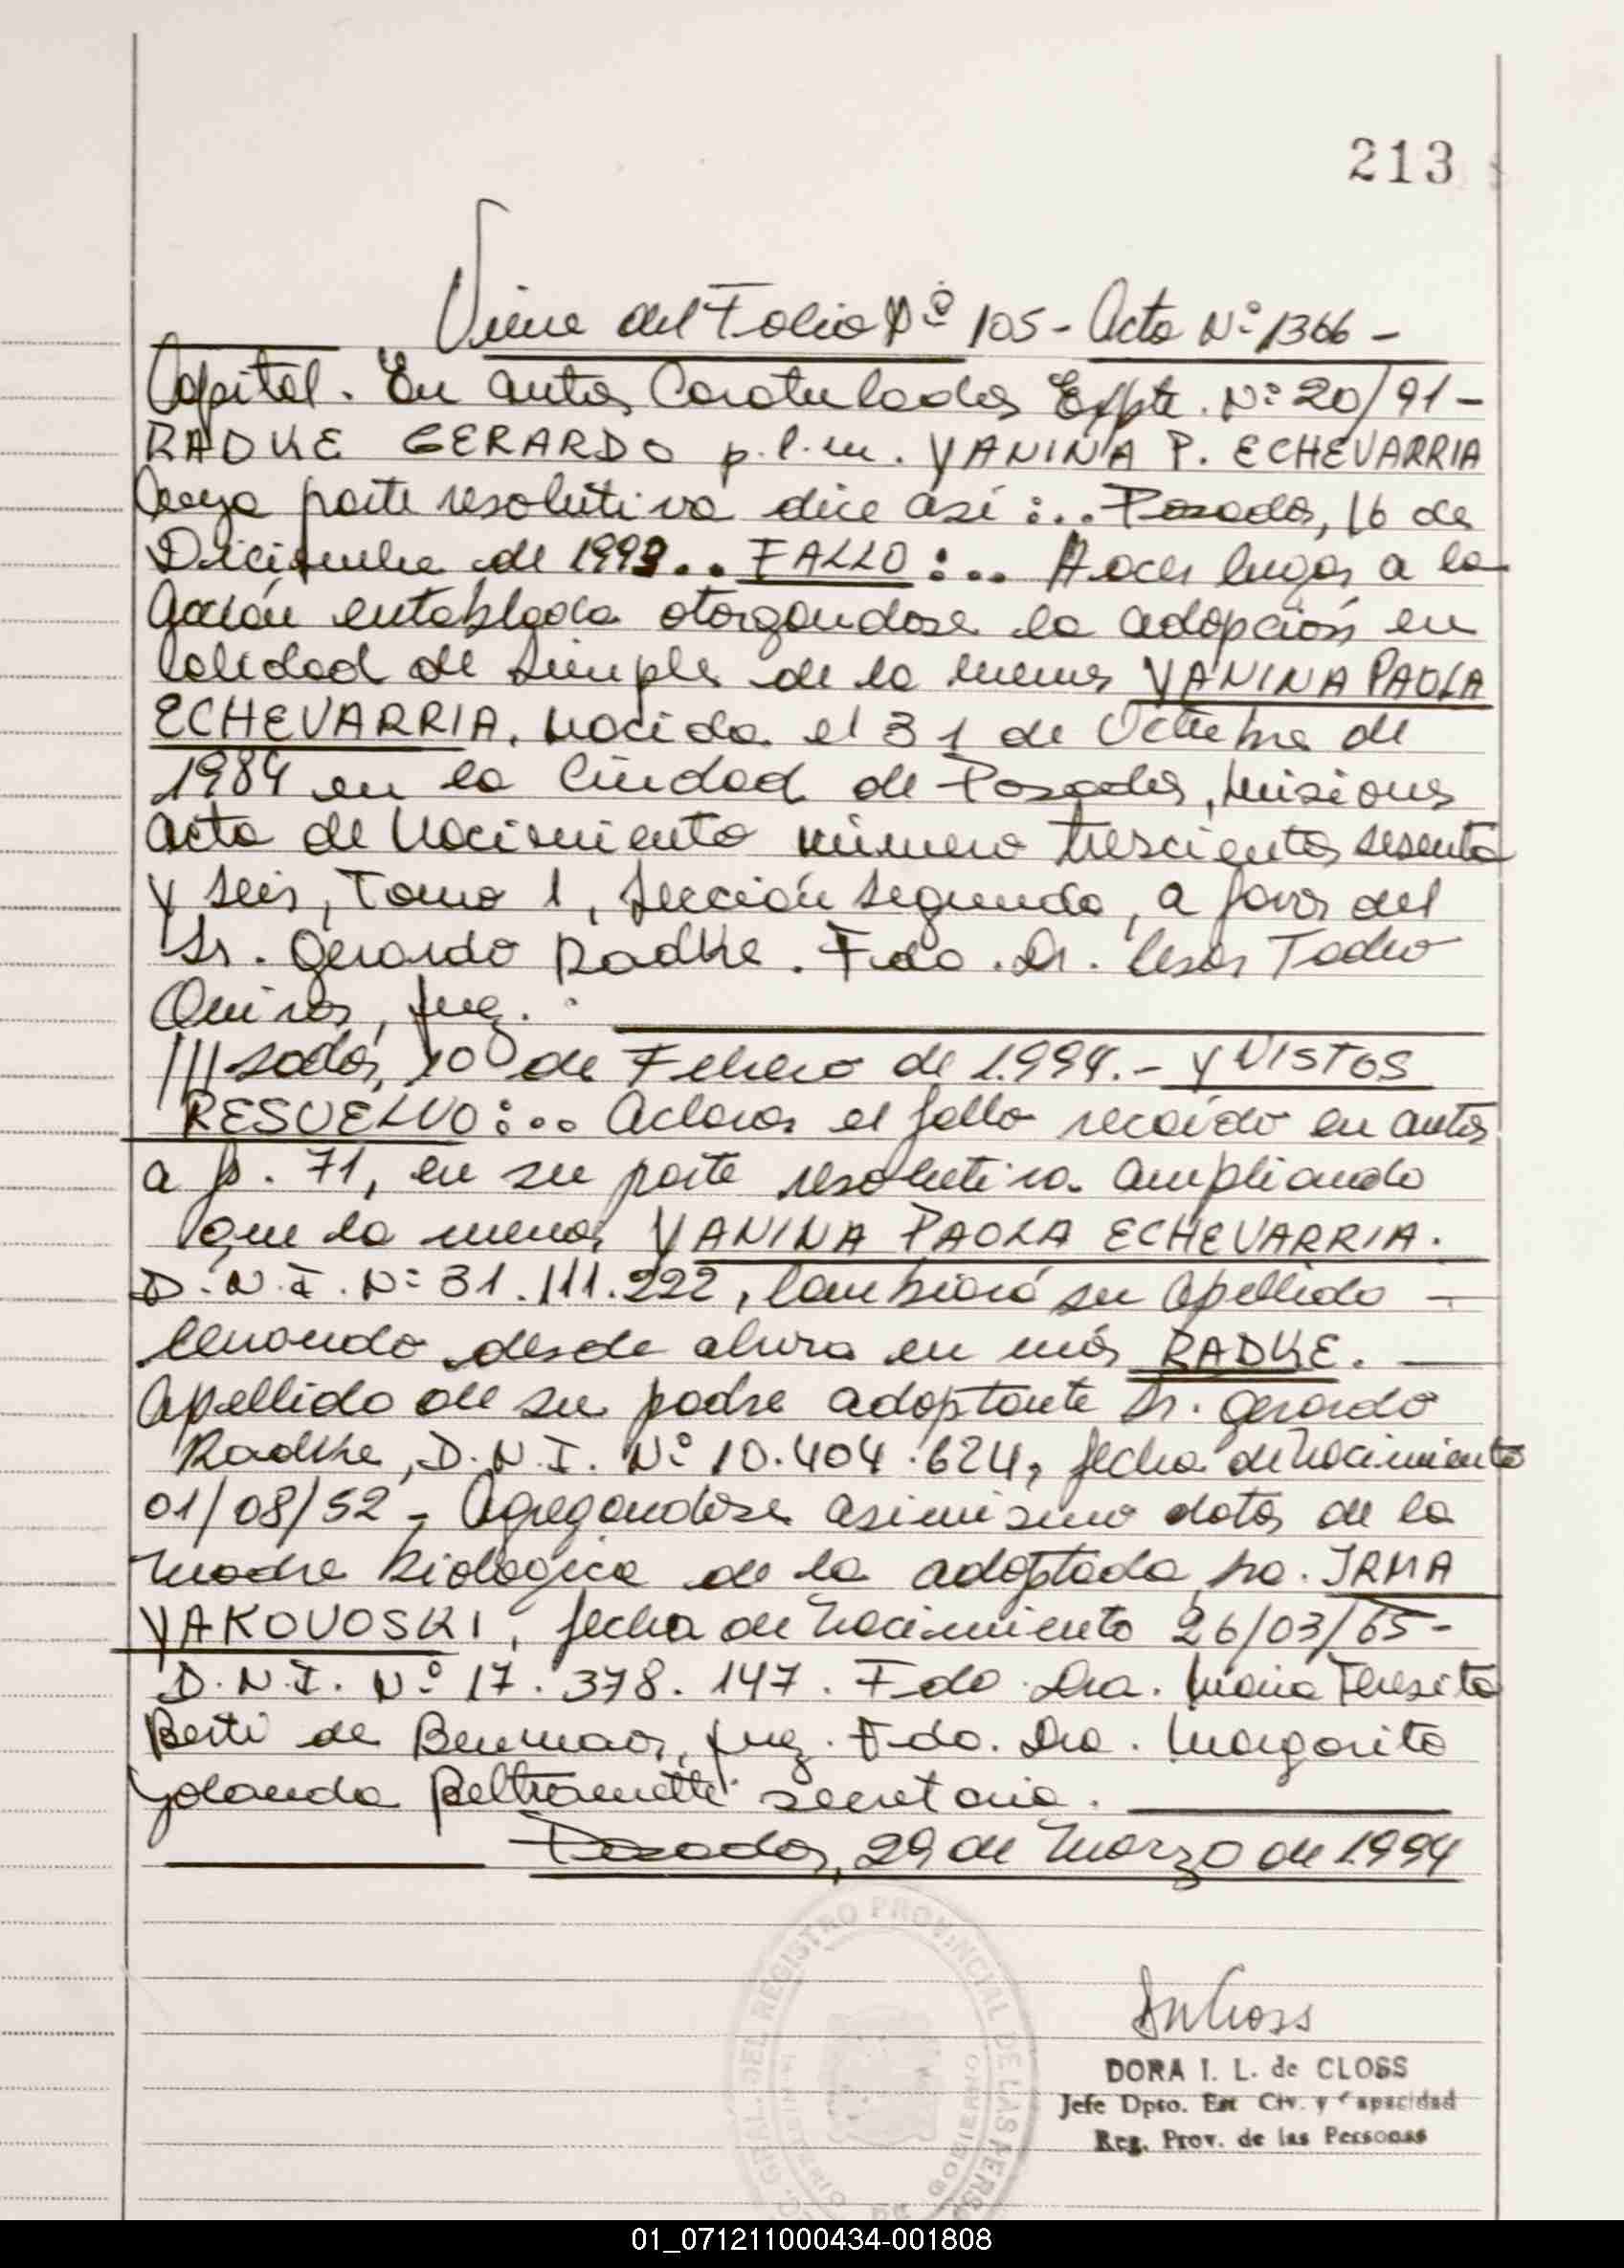 213
Viene del Folio Nº 105 - Acta Nº 1366 -
Capital. En autos Caratulados Expte. Nº 20/91 -
RADKE GERARDO p.l.m. YANINA P. ECHEVARRIA
Cuya parte resolutiva dice así:.. Posadas, 16 de
Diciembre de 1993.. FALLO:.. Hacer lugar a la
acción entablada otorgandose la adopción en
Calidad de Simple de la menor YANINA PAOLA
ECHEVARRIA, nacida el 31 de Octubre de
1984 en la Ciudad de Posadas, Misiones
acta de Nacimiento número trescientos sesenta
y seis, Tomo 1, Sección segunda, a favor del
Sr. Gerardo Radke. Fdo. Dr. Cesar Tadeo
Quiros, Juez.
///sadas, 10 de Febrero de 1.994.- Y VISTOS
RESUELVO:.. Aclarar el fallo recaído en autos
a fs. 71, en su parte resolutiva ampliando
que la menor YANINA PAOLA ECHEVARRIA.
D.N.I. Nº 31.111.222, Cambiará su Apellido -
llevando desde ahora en más RADKE.
Apellido de su padre adoptante Sr. Gerardo
Radke, D.N.I. Nº 10.404.624, fecha de Nacimiento
01/08/52 - Agregandose asimismo datos de la
Madre Biologica de la adoptada Sra. IRMA
YAKOVOSKI, fecha de Nacimiento 26/03/65 -
D.N.I. Nº 17.378.147. Fdo. Dra. Maria Teresita
Berti de Benmaor, Juez. Fdo. Dra. Margarita
Yolanda Beltrametti secretaria.
Posadas, 29 de Marzo de 1994
GRAL. DEL REGISTRO PROVINCIAL DE LAS PERS
MINISTERIO DE GOBIERNO
DORA I. L. de CLOSS
Jefe Dpto. Est Civ. y Capacidad
Reg. Prov. de las Personas
01_071211000434-001808